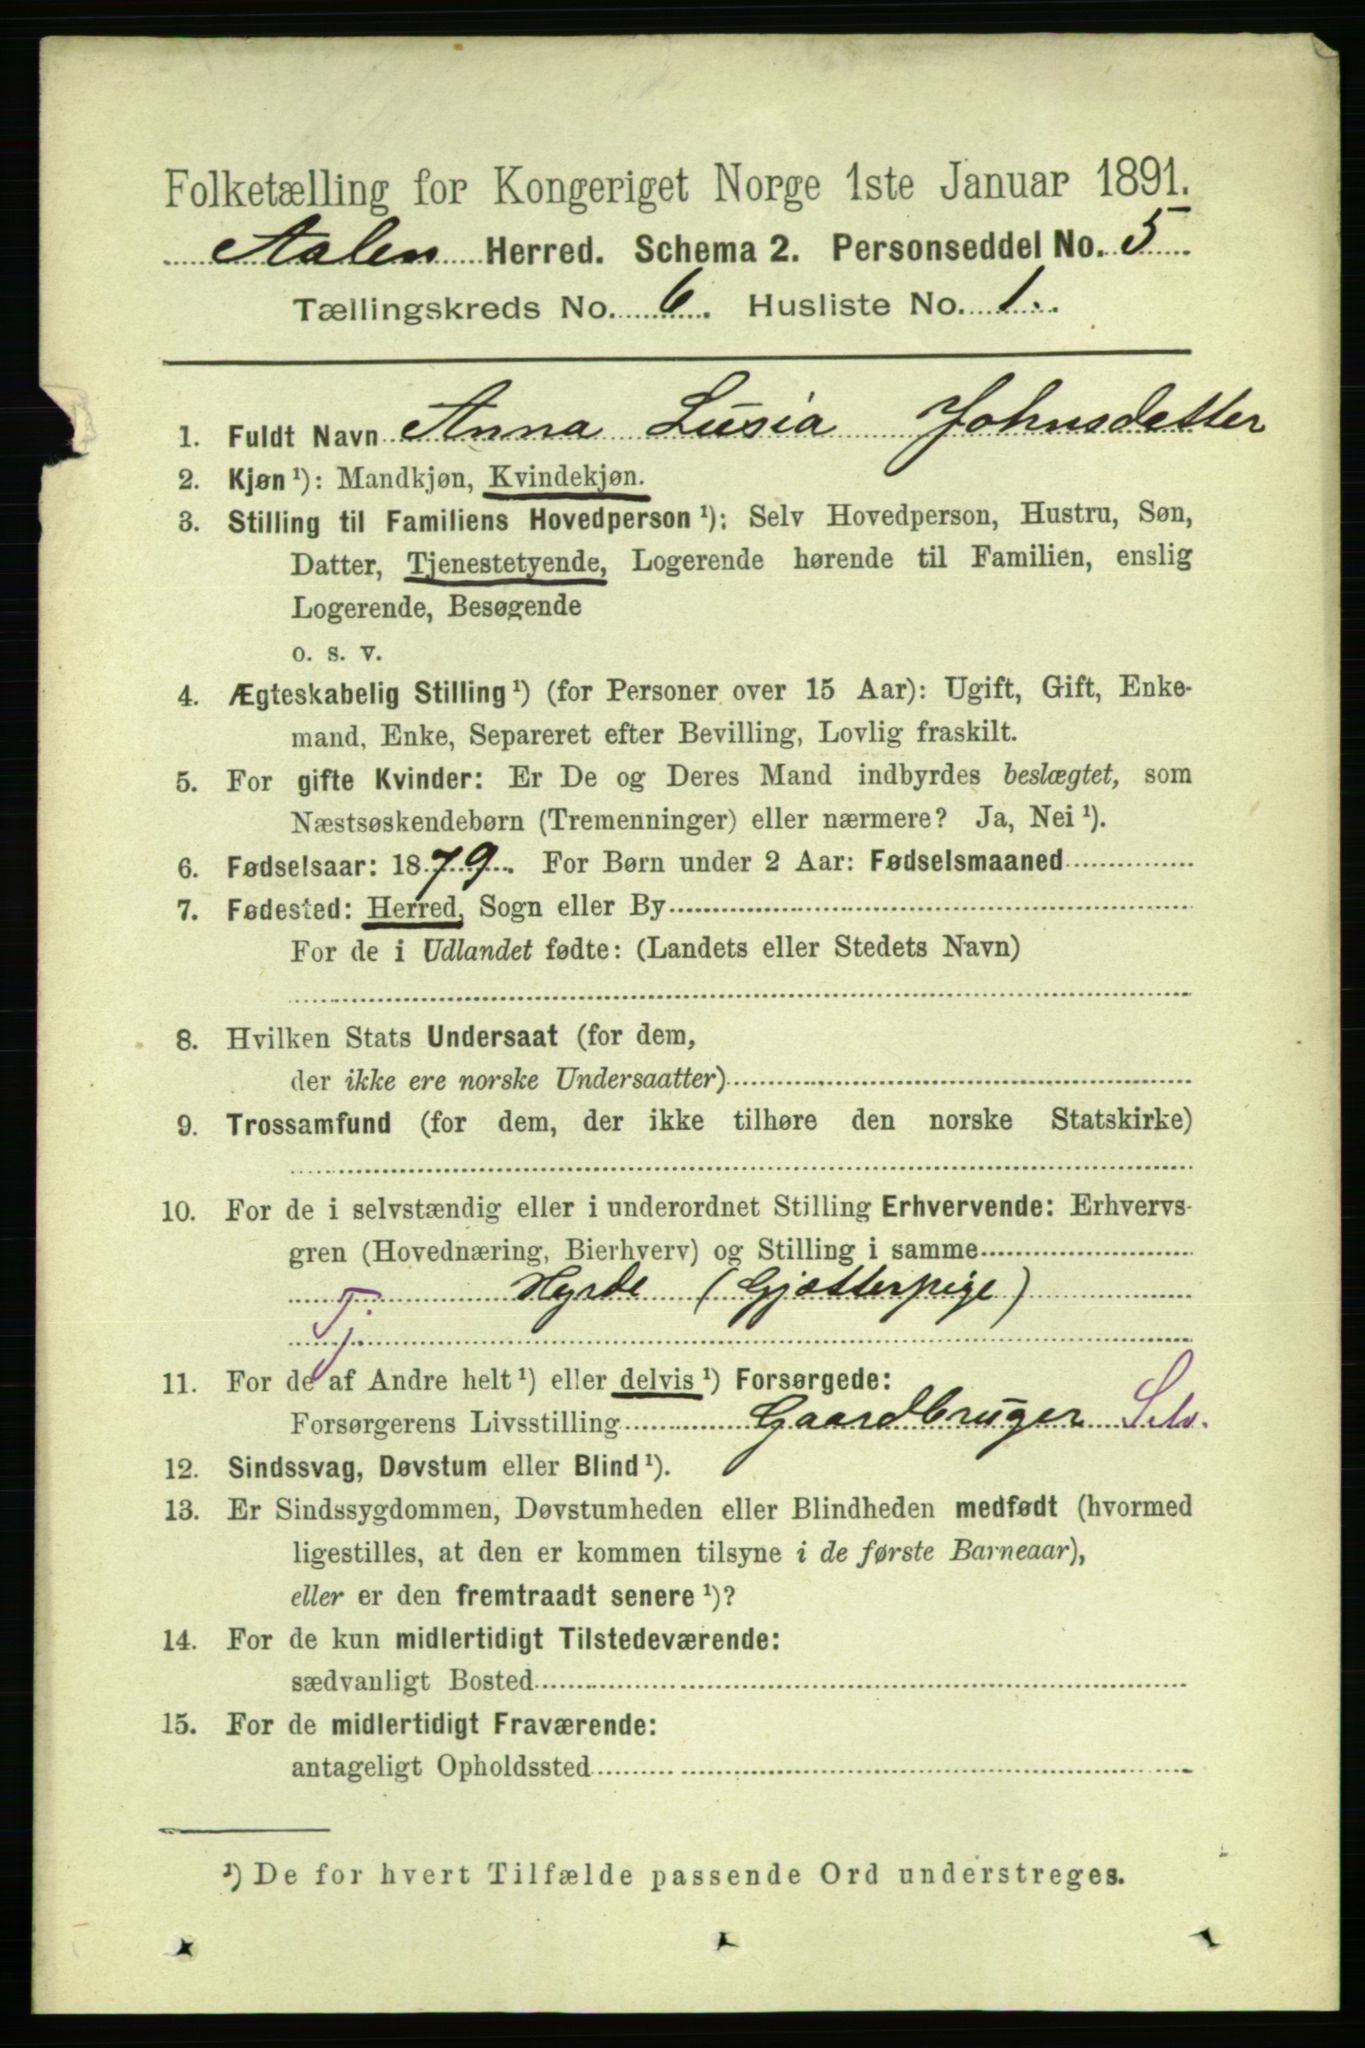 Folketælling for Kongeriget Norge 1ste Januar 1891.
Aalen Herred. Schema 2. Personseddel No. 5
Tællingskreds No. 6. Husliste No. 1.
1. Fuldt Navn Anna Lusia Johnsdetter
2. Kjøn ¹): Mandkjøn, Kvindekjøn.
3. Stilling til Familiens Hovedperson ¹): Selv Hovedperson, Hustru, Søn,
Datter, Tjenestetyende, Logerende hørende til Familien, enslig
Logerende, Besøgende
o. s. v.
4. Ægteskabelig Stilling ¹) (for Personer over 15 Aar): Ugift, Gift, Enke-
mand, Enke, Separeret efter Bevilling, Lovlig fraskilt.
5. For gifte Kvinder: Er De og Deres Mand indbyrdes beslægtet, som
Næstsøskendebørn (Tremenninger) eller nærmere? Ja, Nei ¹).
6. Fødselsaar: 1879. For Børn under 2 Aar: Fødselsmaaned
7. Fødested: Herred, Sogn eller By
For de i Udlandet fødte: (Landets eller Stedets Navn)
8. Hvilken Stats Undersaat (for dem,
der ikke ere norske Undersaatter)
9. Trossamfund (for dem, der ikke tilhøre den norske Statskirke)
10. For de i selvstændig eller i underordnet Stilling Erhvervende: Erhvervs-
gren (Hovednæring, Bierhverv) og Stilling i samme
Hyrde (Gjætterpige)
Tj.
11. For de af Andre helt ¹) eller delvis ¹) Forsørgede:
Forsørgerens Livsstilling Gaardbruger Selv.
12. Sindssvag, Døvstum eller Blind ¹).
13. Er Sindssygdommen, Døvstumheden eller Blindheden medfødt (hvormed
ligestilles, at den er kommen tilsyne i de første Barneaar),
eller er den fremtraadt senere ¹)?
14. For de kun midlertidigt Tilstedeværende:
sædvanligt Bosted
15. For de midlertidigt Fraværende:
antageligt Opholdssted
¹) De for hvert Tilfælde passende Ord understreges.